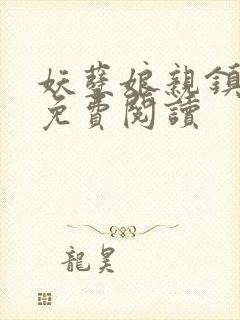 妖孽娘親鎮
免費閱讀
龍昊